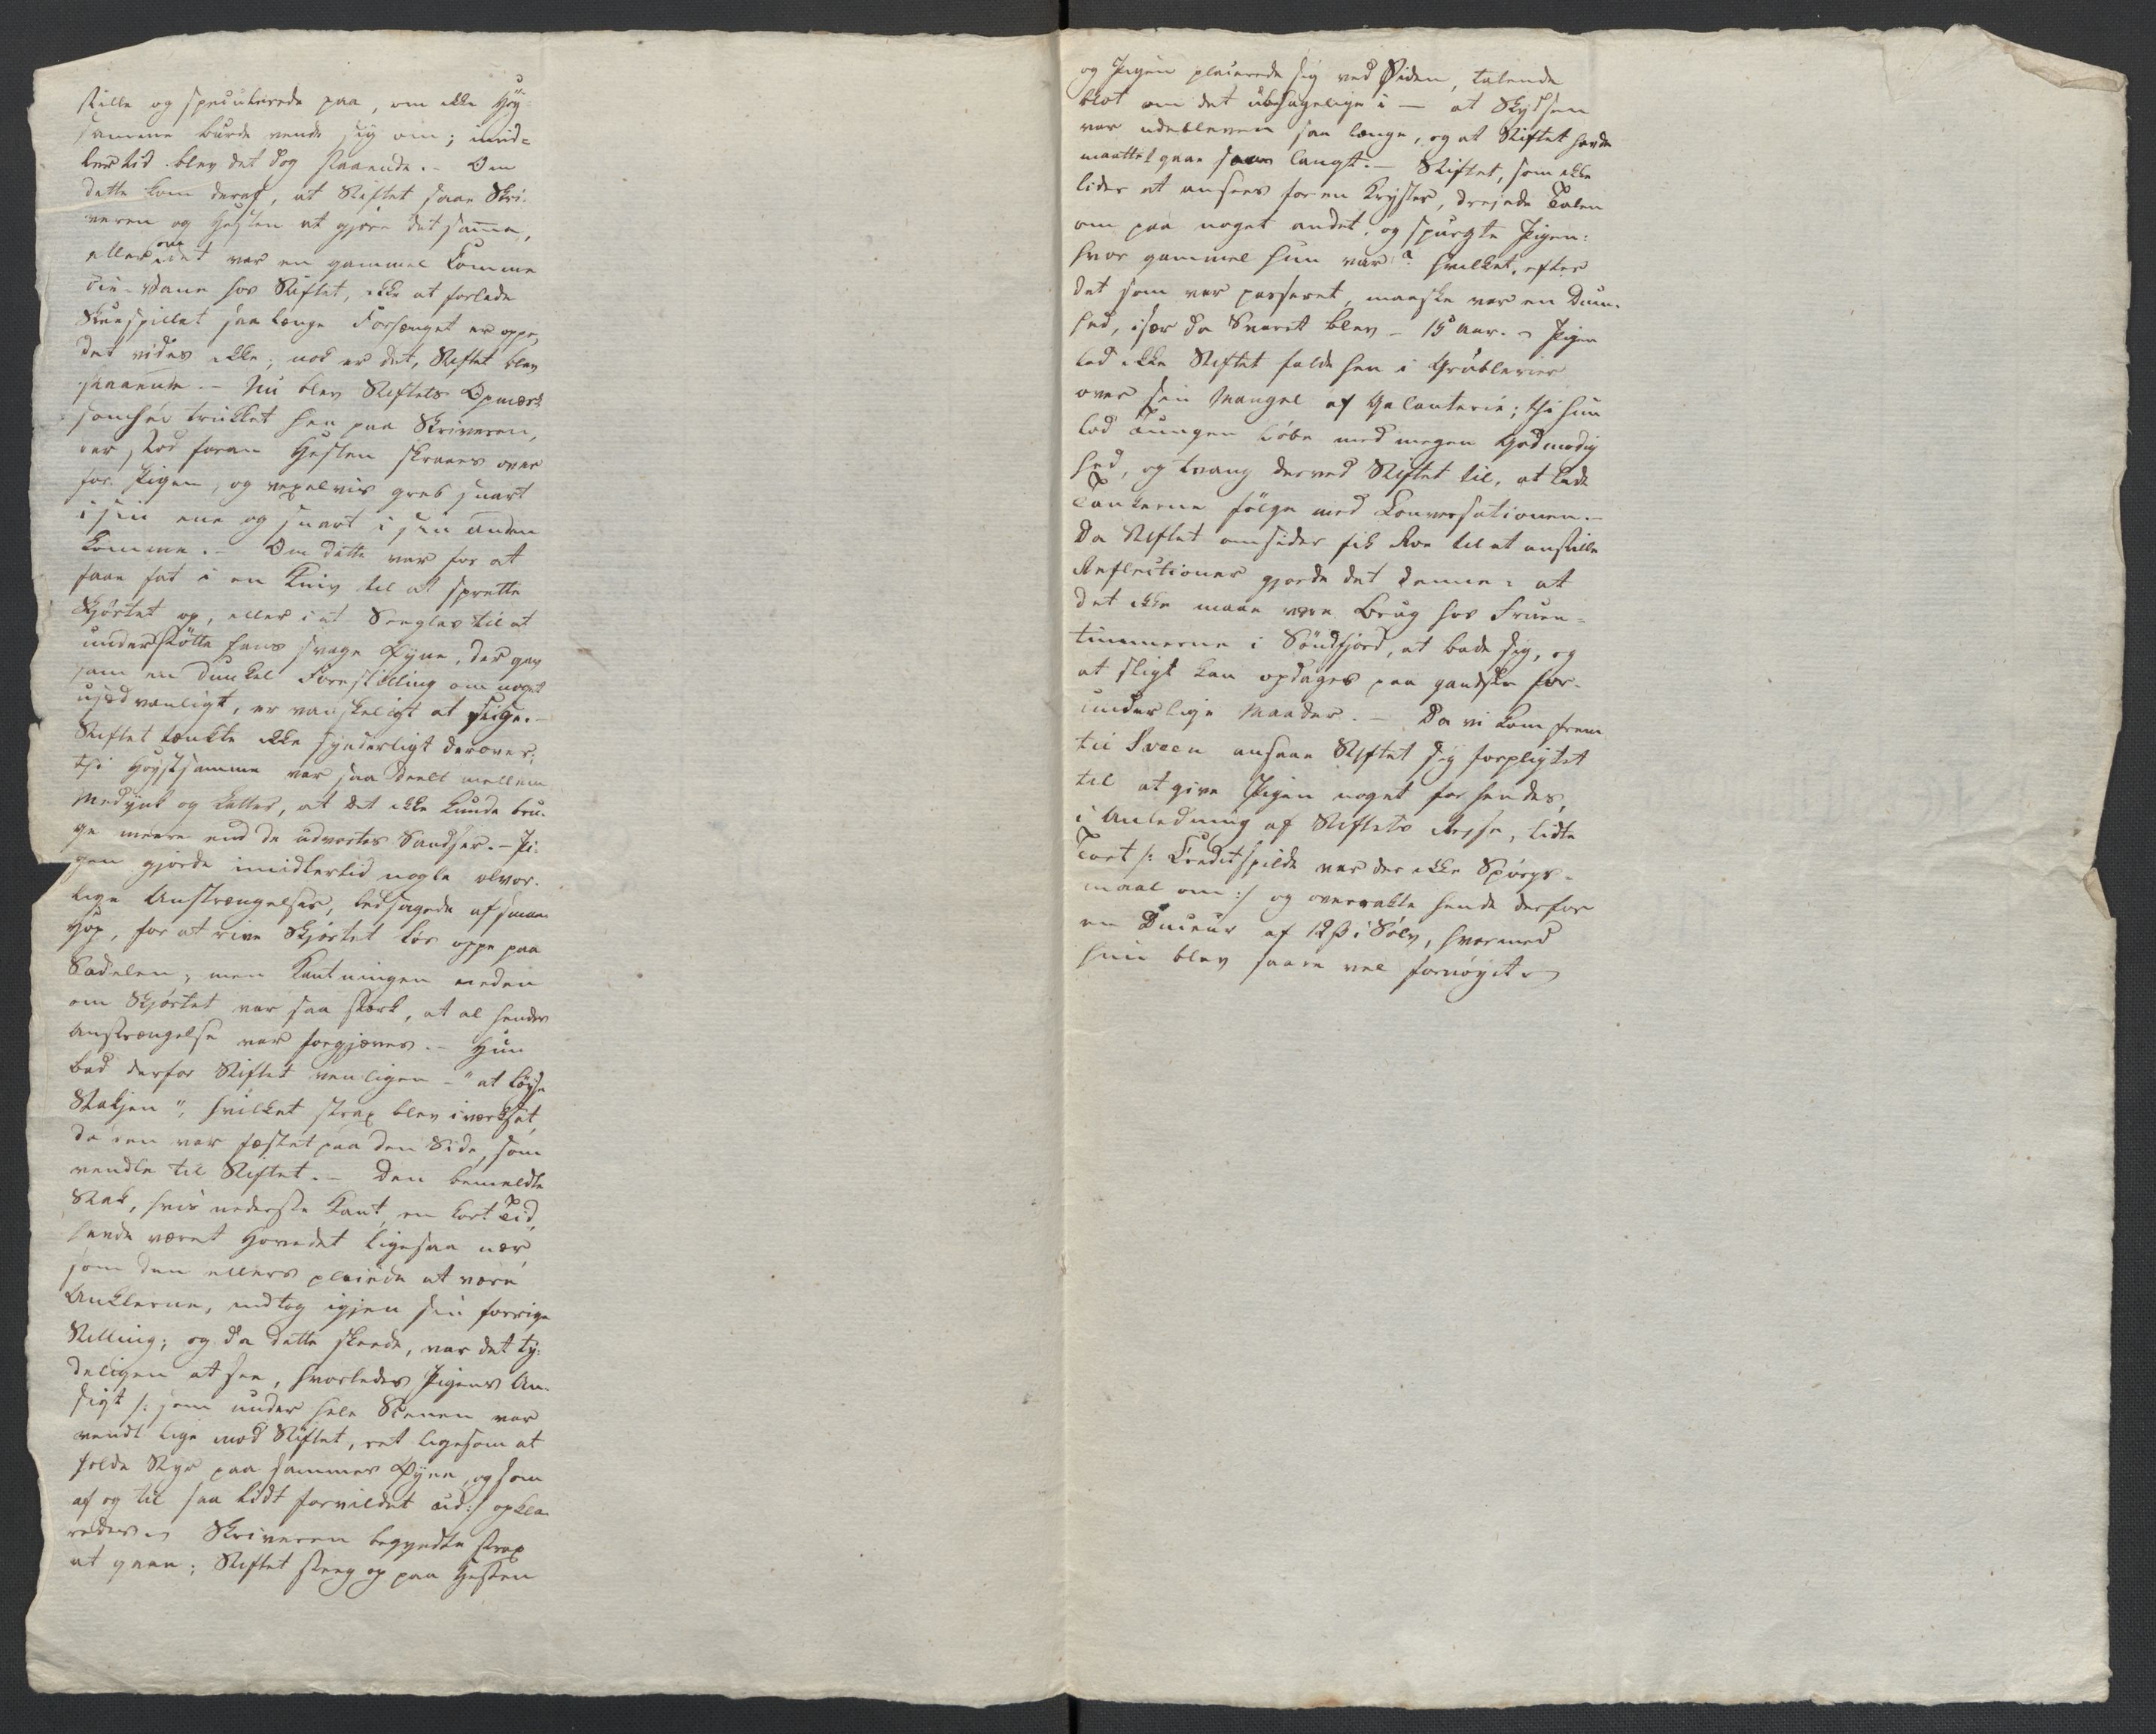 stille og speculerede paa, om ikke Høy-
samme burde vende sig om; imid-
lertid blev det dog staaende. – Om
dette kom deraf, at Stiftet saae Skri-
veren og Hesten at gjøre det samme,
eller om det var en gammel Comme
die-Vane hos Stiftet, ikke at forlade
Skuespillet saa længe Forhænget er oppe,
det vides ikke; nok er det, Stiftet blev
staaende. – Nu blev Stiftets Opmærk
somhed trukket hen paa Skriveren,
der stod foran Hesten skraaes over
for Pigen, og vexelvis greb snart
i sin ene og snart i sin anden
Lomme. – Om dette var for at
faae fat i en Kniv til at sprette
Skjørtet op, eller i et Seeglas til at
understøtte hans svage Øyne, der gav
ham en dunkel Forestilling om noget
usædvanligt, er vanskeligt at sige. –
Stiftet tænkte ikke synderligt derover;
thi Høystsamme var saa deelt mellem
Medynk og Latter, at det ikke kunde bru-
ge meere end de udvortes Sandser. – Pi-
gen gjorde imidlertid nogle alvor-
lige Anstrængelser, ledsagede af smaa
Hop, for at rive Skjørtet løs oppe paa
Sadelen; men Kantningen neden
om Skjørtet var saa stærk, at al hendes
Anstrængelse var forgjæves. – Hun
bad derfor Stiftet venligen – "at løyse
Stakjen", hvilket strax blev iværksat,
da den var fæstet paa den Side, som
vendte til Stiftet. – Den bemeldte
Stak, hvis nederste Kant en kort Tid,
havde været Hovedet ligesaa nær,
som den ellers pleiede at være
Anklerne, indtog igjen sin forrige
Stilling; og da dette skeede, var det ty-
deligen at see, hvorledes Pigens An-
sigt /: som under hele Scenen var
vendt lige mod Stiftet, ret ligesom at
holde Styr paa sammes Øyne, og som
af og til saa lidt forvildet ud :/ opkla-
redes. Skriveren begyndte strax
at gaae; Stiftet steeg op paa Hesten
og Pigen placerede sig ved Siden, talende
blot om det ubehagelige i – at Skydsen
var udebleven saa længe, og at Stiftet havde
maattet gaae saa langt. – Stiftet, som ikke
lider at ansees for en Kryster, drejede Talen
om paa noget andet, og spurgte Pigen:
hvor gammel hun var? hvilket, efter
det som var passeret, maaske var en Dum-
hed, især da Svaret blev – 15 Aar. – Pigen
lod ikke Stiftet falde hen i Grublerier
over sin Mangel af Galanterie; thi hun
lod Tungen løbe med megen Godmodig
hed, og tvang derved Stiftet til, at lade
Tankerne følge med Conversationen. –
Da Stiftet omsider fik Roe til at anstille
Reflectioner gjorde det denne: at
det ikke maae være Brug hos Fruen-
timmerne i Söndfjord, at bade sig, og
at sligt kan opdages paa gandske for-
underlige Maader. – Da vi kom frem
til Sveen ansaae Stiftet sig forpligtet
til at give Pigen noget for hendes,
i Anledning af Stiftets Rejse, lidte
Tort /: Creditspilde var der ikke Spørgs-
maal om :/ og overrakte hende derfor
en Duceur af 12 ß i Sølv, hvormed
hun blev saare vel fornøyet.